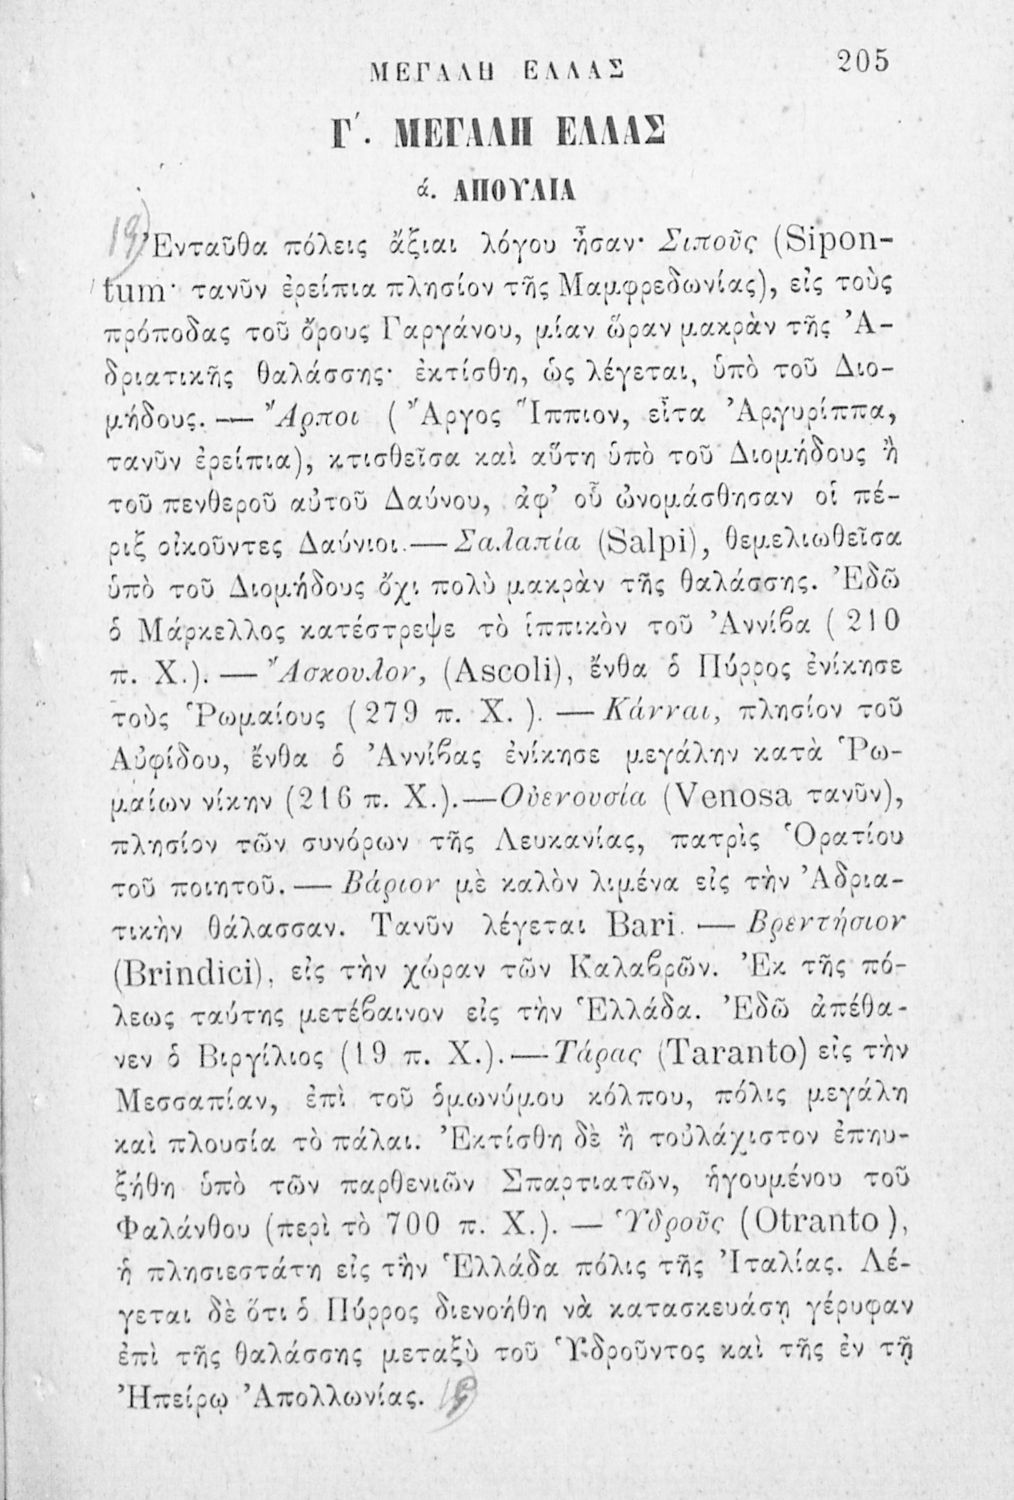 ΜΕΓΑΛΗ ΕΛΛΑΣ 205
Γ΄. ΜΕΓΑΛΗ ΕΛΛΑΣ
ά. ΑΠΟΥΛΙΑ
19) Ἐνταῦθα πόλεις ἄξιαι λόγου ἦσαν· Σιποῦς (Sipon-
tum· τανῦν ἐρείπια πλησίον τῆς Μαμφρεδωνίας), εἰς τοὺς
πρόποδας τοῦ ὄρους Γαργάνου, μίαν ὥραν μακρὰν τῆς Ἀ-
δριατικῆς θαλάσσης· ἐκτίσθη, ὡς λέγεται, ὑπὸ τοῦ Διο-
μήδους. — Ἄρποι (Ἄργος Ἵππιον, εἶτα Ἀργυρίππα,
τανῦν ἐρείπια), κτισθεῖσα καὶ αὕτη ὑπὸ τοῦ Διομήδους ἢ
τοῦ πενθεροῦ αὐτοῦ Δαύνου, ἀφ’ οὗ ὠνομάσθησαν οἱ πέ-
ριξ οἰκοῦντες Δαύνιοι. — Σαλαπία (Salpi), θεμελιωθεῖσα
ὑπὸ τοῦ Διομήδους ὄχι πολὺ μακρὰν τῆς θαλάσσης. Ἐδῶ
ὁ Μάρκελλος κατέστρεψε τὸ ἱππικὸν τοῦ Ἀννίβα (210
π. Χ.). — Ἄσκουλον, (Ascoli), ἔνθα ὁ Πύρρος ἐνίκησε
τοὺς Ῥωμαίους (279 π. Χ.). — Κάνναι, πλησίον τοῦ
Αὐφίδου, ἔνθα ὁ Ἀννίβας ἐνίκησε μεγάλην κατὰ Ῥω-
μαίων νίκην (216 π. Χ.). — Οὐενουσία (Venosa τανῦν),
πλησίον τῶν συνόρων τῆς Λευκανίας, πατρὶς Ὁρατίου
τοῦ ποιητοῦ. — Βάριον μὲ καλὸν λιμένα εἰς τὴν Ἀδρια-
τικὴν θάλασσαν. Τανῦν λέγεται Bari. — Βρεντήσιον
(Brindici), εἰς τὴν χώραν τῶν Καλαβρῶν. Ἐκ τῆς πό-
λεως ταύτης μετέβαινον εἰς τὴν Ἑλλάδα. Ἐδῶ ἀπέθα-
νεν ὁ Βιργίλιος (19 π. Χ.). — Τάρας (Taranto) εἰς τὴν
Μεσσαπίαν, ἐπὶ τοῦ ὁμωνύμου κόλπου, πόλις μεγάλη
καὶ πλουσία τὸ πάλαι. Ἐκτίσθη δὲ ἢ τοὐλάχιστον ἐπηυ-
ξήθη ὑπὸ τῶν παρθενιῶν Σπαρτιατῶν, ἡγουμένου τοῦ
Φαλάνθου (περὶ τὸ 700 π. Χ.). — Ὑδροῦς (Otranto),
ἡ πλησιεστάτη εἰς τὴν Ἑλλάδα πόλις τῆς Ἰταλίας. Λέ-
γεται δὲ ὅτι ὁ Πύρρος διενοήθη νὰ κατασκευάσῃ γέρυφαν
ἐπὶ τῆς θαλάσσης μεταξὺ τοῦ Ὑδροῦντος καὶ τῆς ἐν τῇ
Ἠπείρῳ Ἀπολλωνίας.